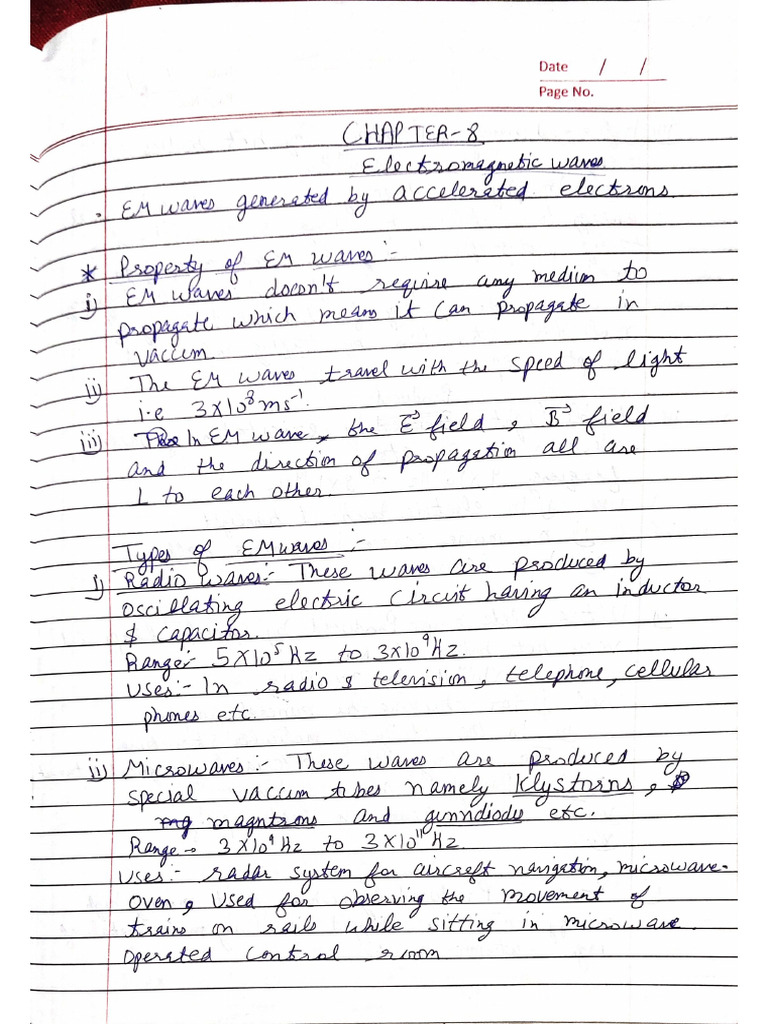 Date / /
Page No.
CHAPTER-8
Electromagnetic waves
. EM waves generated by accelerated electrons.
* Property of EM waves:-
i) EM waves doesn't require any medium to
propagate which means it can propagate in
vaccum
ii) The EM waves travel with the speed of light
i.e 3×10⁸ ms⁻¹.
iii) In EM wave, the E⃗ field, B⃗ field
and the direction of propagation all are
⊥ to each other.
Types of EM waves :-
i) Radio waves:- These waves are produced by
oscillating electric circuit having an inductor
& capacitor.
Range:- 5×10⁵ Hz to 3×10⁹ Hz.
Uses:- In radio & television, telephone, cellular
phones etc.
ii) Microwaves:- These waves are produced by
special vaccum tubes namely klystorns,
magntrons and gunndiodes etc.
Range→ 3×10⁹ Hz to 3×10¹¹ Hz.
Uses:- radar system for aircreft navigation, microwave-
oven, used for observing the movement of
trains on rails while sitting in microwave
operated control room